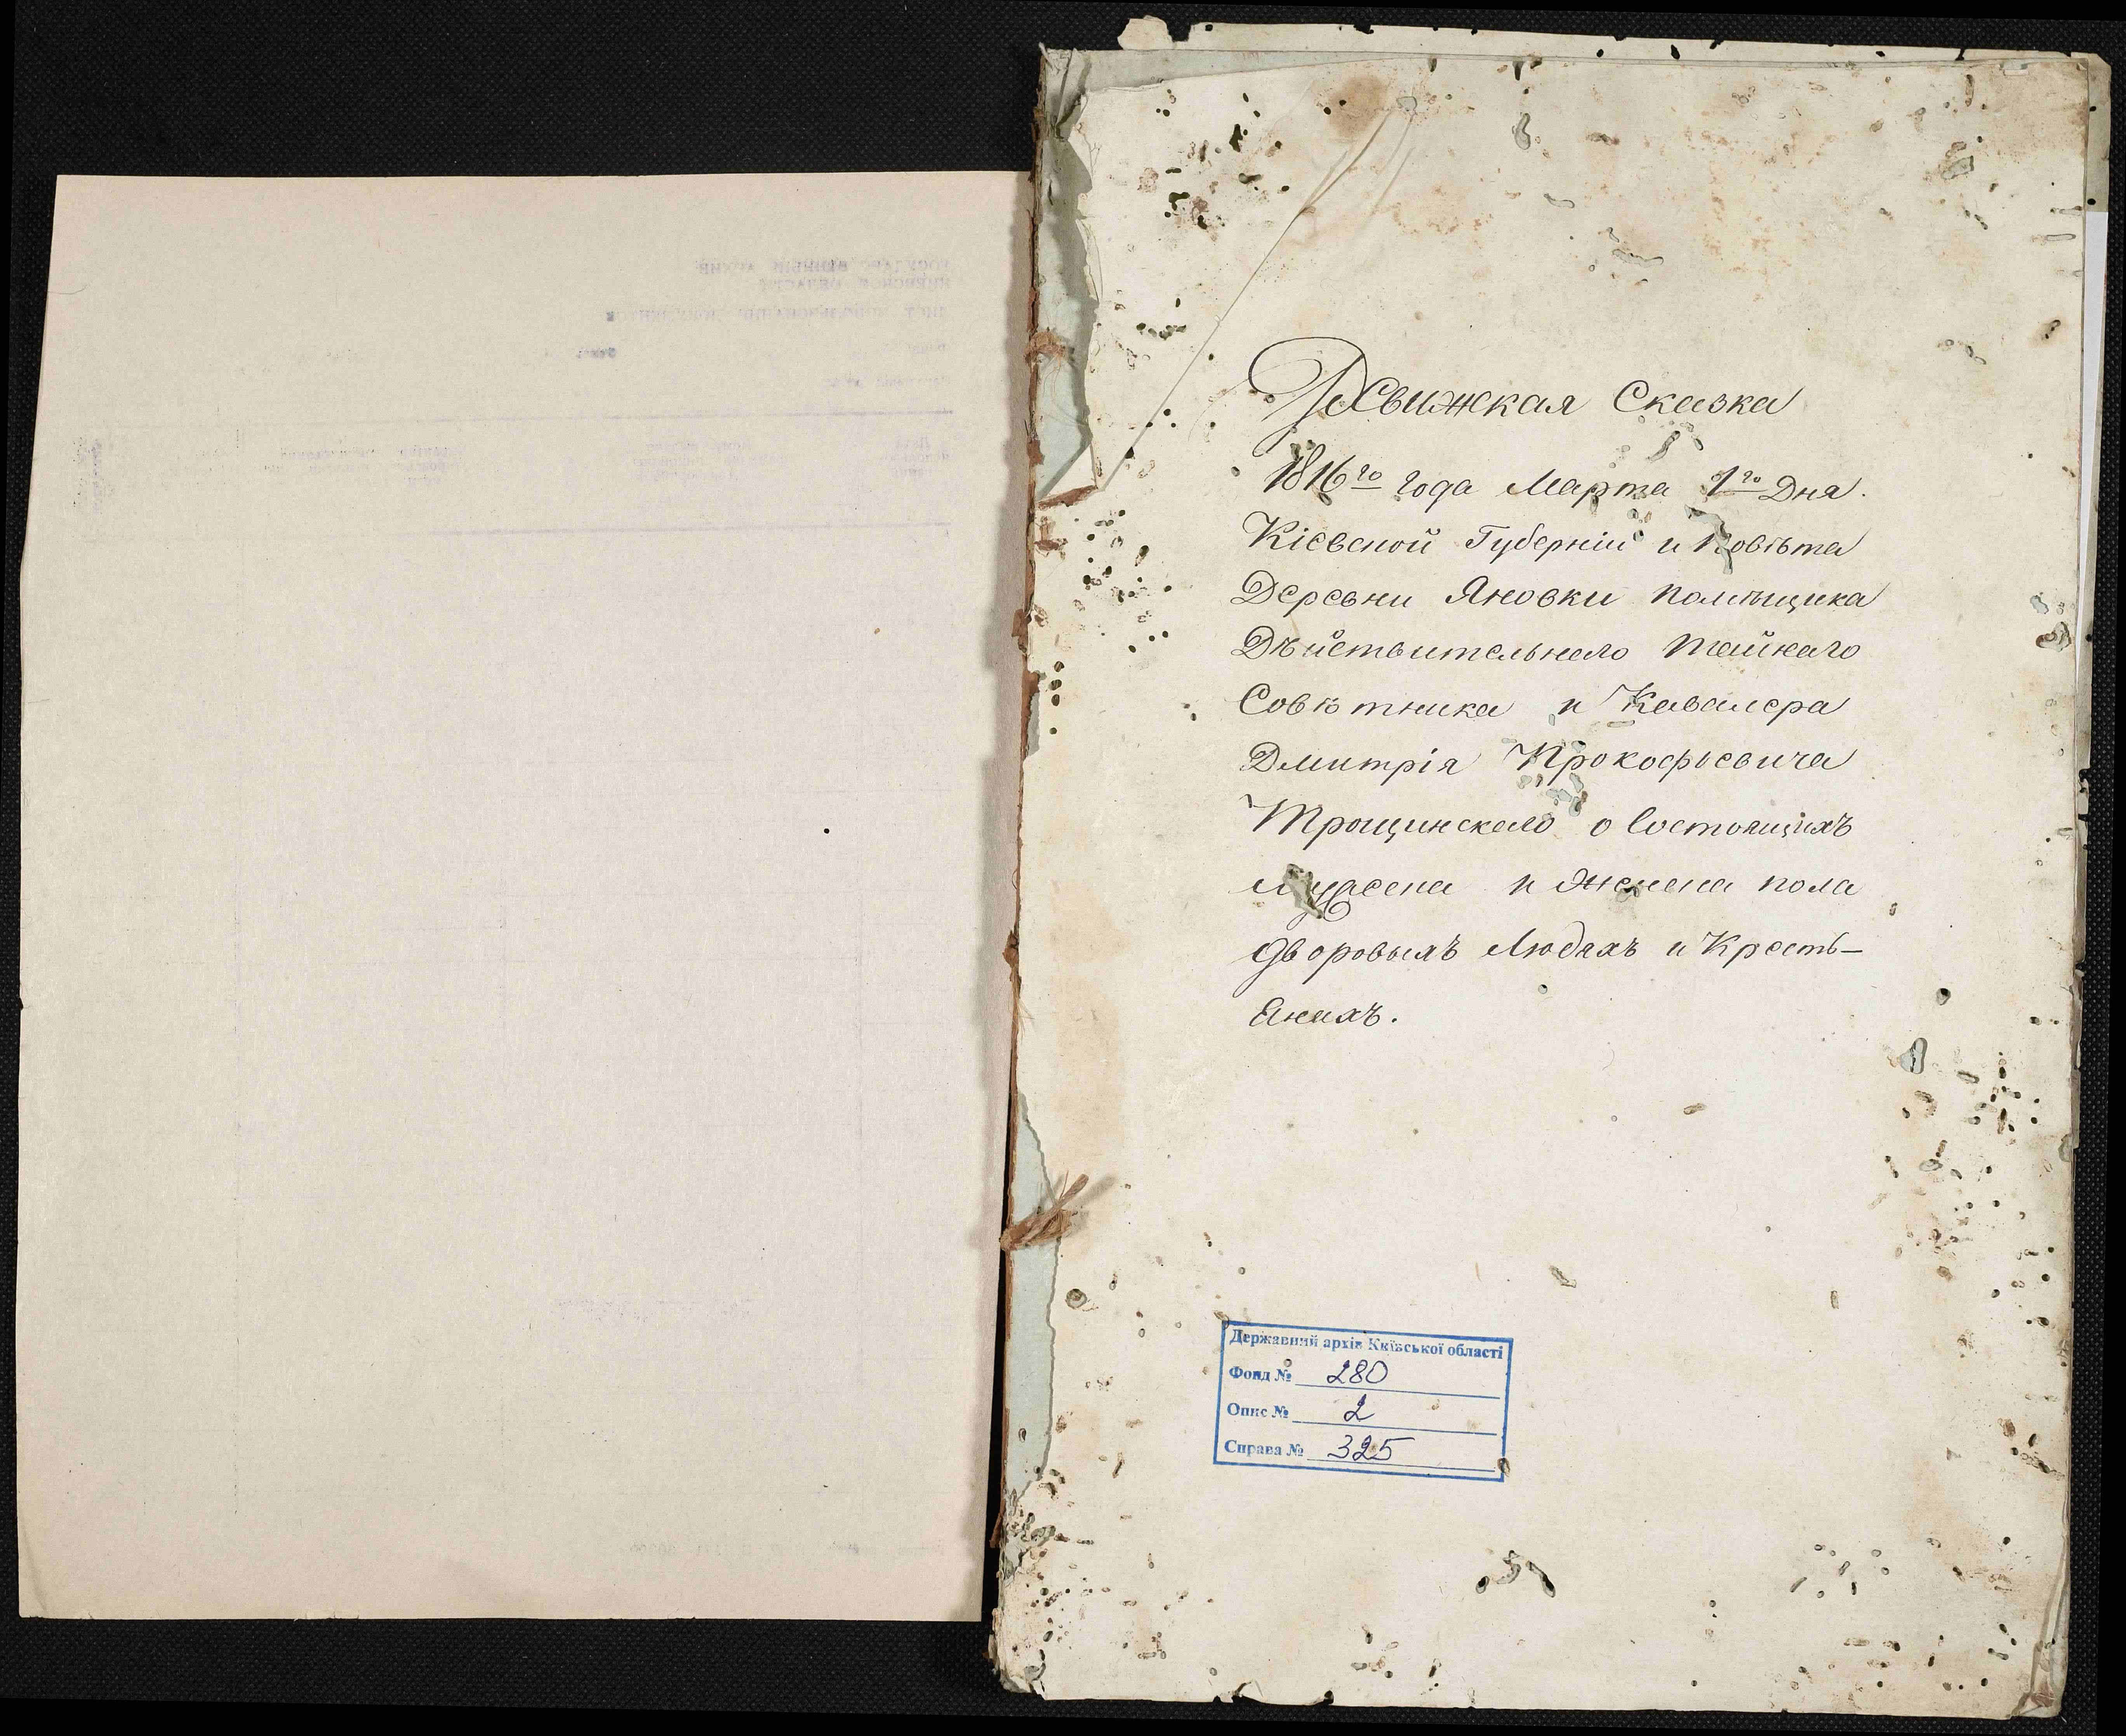 Ревижская Сказка
1816го года Марта 1го Дня.
Кіевской Губерніи и повѣта
Деревни Яновки помѣщика
Дѣйствительнаго Тайнаго
Совѣтника и Кавалера
Дмитрія Прокофьевича
Трощинскаго о Состоящихъ
мужеска и женска пола
дворовыхъ Людяхъ и Кресть-
янахъ.
Державний архів Київської області
Фонд № 280
Опис № 2
Справа № 325